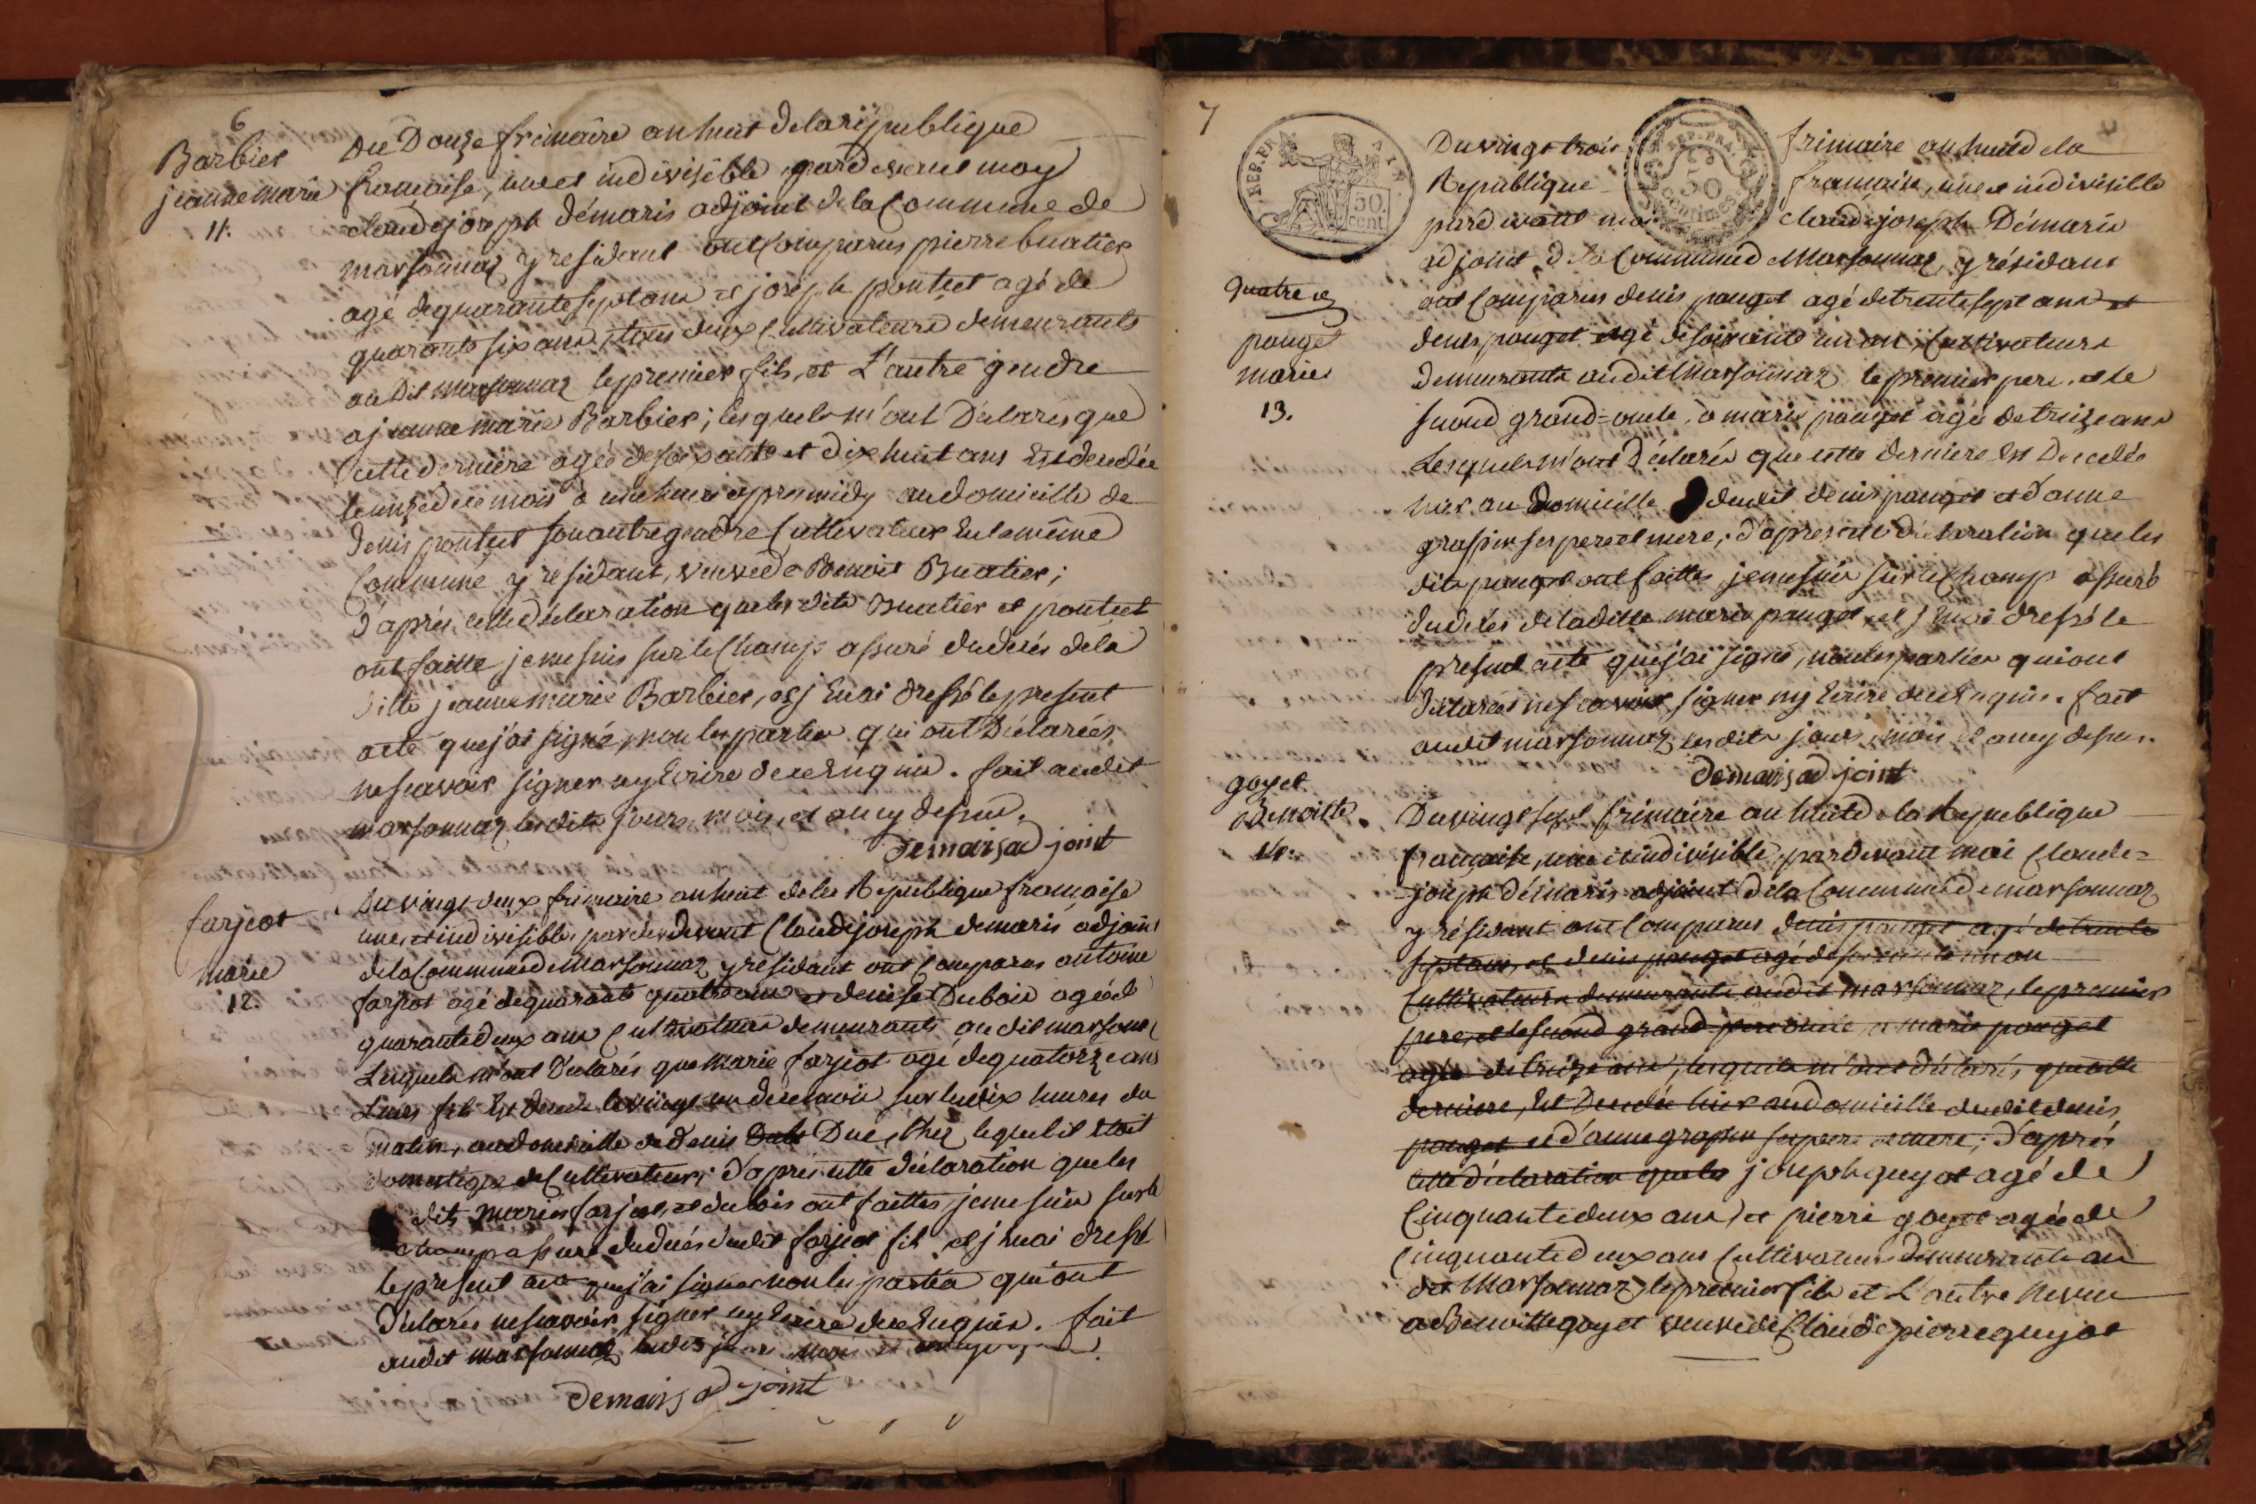 6
Barbier
jeanne marie
11.
Du Douze frimaire an huit de la republique
francaise, une et indivisible, pardevant moy
claude joseph démaris adjoint de la Commune de
marsonnaz y residant ont Comparus pierre buatier
agé de quarante sept ans et joseph pontet agé de
quarante six ans, tous deux Cultivateurs demeurants
au Dit marsonnaz le premier fils, et L'autre gendre
a jeanne marie Barbier; lesquels m'ont Déclarés que
Cette derniere agée de soixante et dix huit ans Est decedée
le onze de ce mois a une heure apres midy au domicille de
denis pontet son autre gendre Cultivateur En la même
Commune y residant, veuve de Benoit Buatier;
D'après cette déclaration que les dits Buatier et pontet
ont faitte je me suis sur le Champ assuré du decés de la
ditte jeanne marie Barbier, et j'En ai dressé le present
acte que j'ai signé, non les parties qui ont Déclarées
ne scavoir signer ny Ecrire de ce Enquis. fait audit
marsonnaz les dits jours, mois, et an cy dessus.
demaris ad joint
farjeot
marie
12.
Du vingt deux frimaire an huit de la Republique francaise
une, et indivisible, pardevant Claude joseph demaris adjoint
de la Commune de Marsonnaz y residant ont Comparus antoine
farjeot agé de quarante quatre ans et denise Dubois agée de
quarante deux ans Cultivateurs demeurants au dit marsonnaz
Lesquels m'ont Déclarés que marie farjeot agé de quatorze ans
Leurs fils Est decedé le vingt un de ce mois sur les dix heures du
matin, au domicille de denis Duc, Chez lequel il etoit
domestique de Cultivateur; d'après cette déclaration que les
dits marie farjeot, et dubois ont faittes, je me suis sur le
champ assuré du decés du dit farjeot fils et j'en ai dressé
le present acte que j'ai signé non les parties qui ont
Déclarés ne scavoir signer ny Ecrire de ce Enquis. fait
audit marsonnaz les dits jour mois et an cy dessus.
demaris ad joint
7
REP. FRA.
50
cent.
REP. FRA.
50
centimes
quatre
pouget
marie
13.
Du vingt trois frimaire an huit de la
Republique francaise, une et indivisible
pardevant moi Claude joseph Démaris
adjoint de la Commune de Marsonnaz, y résidant
ont Comparus denis pouget agé de trente sept ans et
denis pouget agé de soixante un an, Cultivateurs
demeurants audit Marsonnaz le premier pere, et le
second grand-oncle, a marie pouget agée de treize ans
Lesquels m'ont Déclarés que cette derniere Est Decedée
hier au Domicille dudit denis pouget et d'anne
grassin ses pere et mere; d'après cette déclaration que les
dits pouget ont faittes, je me suis sur le Champ assuré
du decés de la ditte marie pouget et j'En ai dressé le
present acte que j'ai signé, non les parties qui ont
Déclarées ne scavoir signer ny Ecrire de ce Enquis. fait
audit marsonnaz les dits jours, mois et an cy dessus.
demaris ad joint
goyet
Benoitte.
14.
Du vingt sept frimaire an huit de la Republique
francaise, une et indivisible, pardevant moi Claude=
=joseph démaris adjoint de la Commune de marsonnaz
y résidant ont Comparus denis pouget agé de trente
sept ans, et denis pouget agé de soixante un an
Cultivateurs demeurants audit marsonnaz, le premier
pere, et le second grand pere oncle, a marie pouget
agée de treize ans, lesquels m'ont déclarés, que cette
derniere, Est Decedée hier au domicille dudit denis
pouget et d'anne grassin ses pere et mere; D'après
cette déclaration que les joseph guyot agé de
Cinquante deux ans, et pierre goyet agée de
Cinquante deux ans Cultivateurs demeurants au
dit Marsonnaz, le premier fils et L'autre Neveu
a Benoitte goyet veuve de Claude pierre guyot